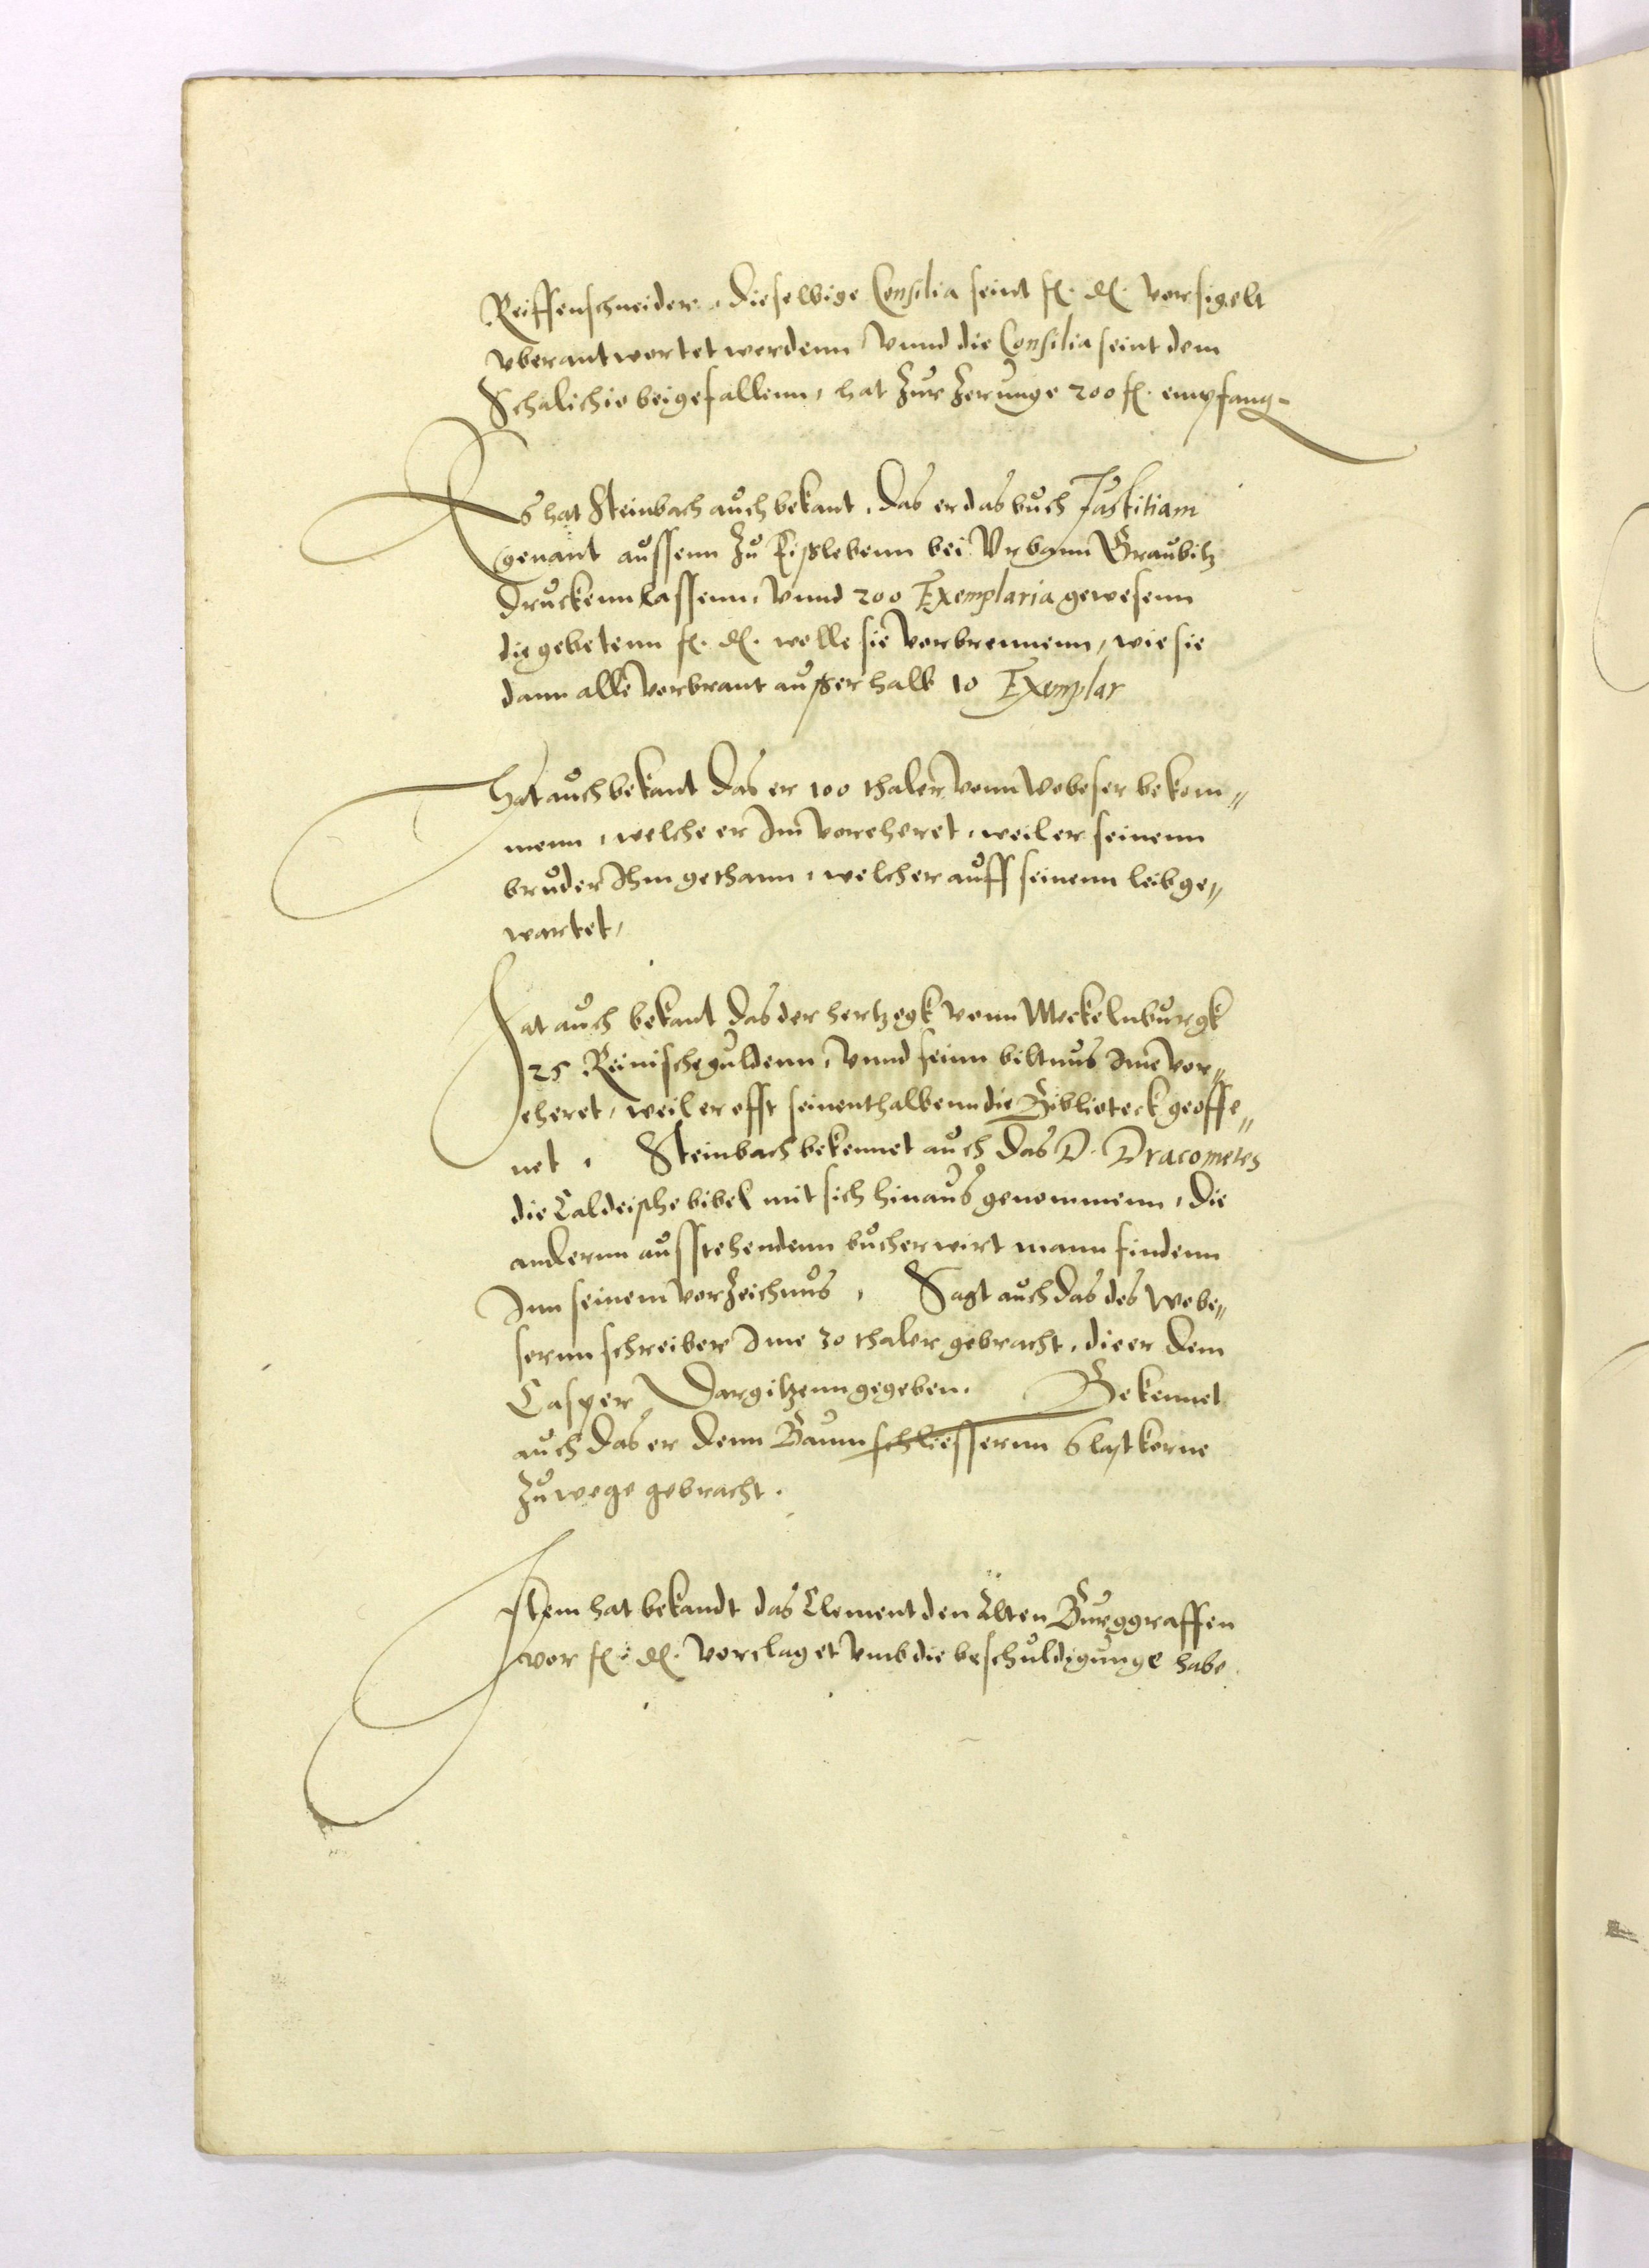 Reiffenschneider. Dieselbige Consilia seint f. d. vorsigelt
vberantwortet werdenn Vnnd die Consilia seint dem
Schalichio beigefallenn, hat Zur Zerunge 200 fl. empfang-
Es hat Steinbach auch bekant, das er das buch Justitiam
genant aussenn Zu Eißlebenn bei Vrbann Graubitz
druckenn lassenn, Vnnd 200 Exemplaria gewesenn
die gebetenn f. d. wolle sie Vorbrennenn, wie sie
dann alle Vorbrant außerhalb 10 Exemplar
Hat auch bekant das er 100 thaler vonn Wobeser bekom„
menn, welche er Im voreheret, weil er seinenn
bruder Ihm gethann, welcher auff seinenn leib ge„
wartet,
Hat auch bekant das der hertzogk vonn Meckelnburgk
25 Reinische guldenn, Vnnd seinn biltnus Ime vor„
eheret, weil er offt seinenthalbenn die Biblioteck geoffe„
net. Steinbach bekennet auch das D. Dracometes
die Caldeische bibel mit sich hinaus genommenn, die
andernn ausstehendenn bucher wirt mann findenn
Inn seinem Vorzeichnus. Sagt auch das des Wobe„
sernn schreiber Ime 30 thaler gebracht, die er dem
Casper Dargitzenn gegeben. Bekennet
auch das er denn Baumschliessernn 6 last korne
Zuwege gebracht.
Item hat bekandt das Clement den Alten Burggraffen
vor f. d. vorclaget vmb die beschuldigunge habe.